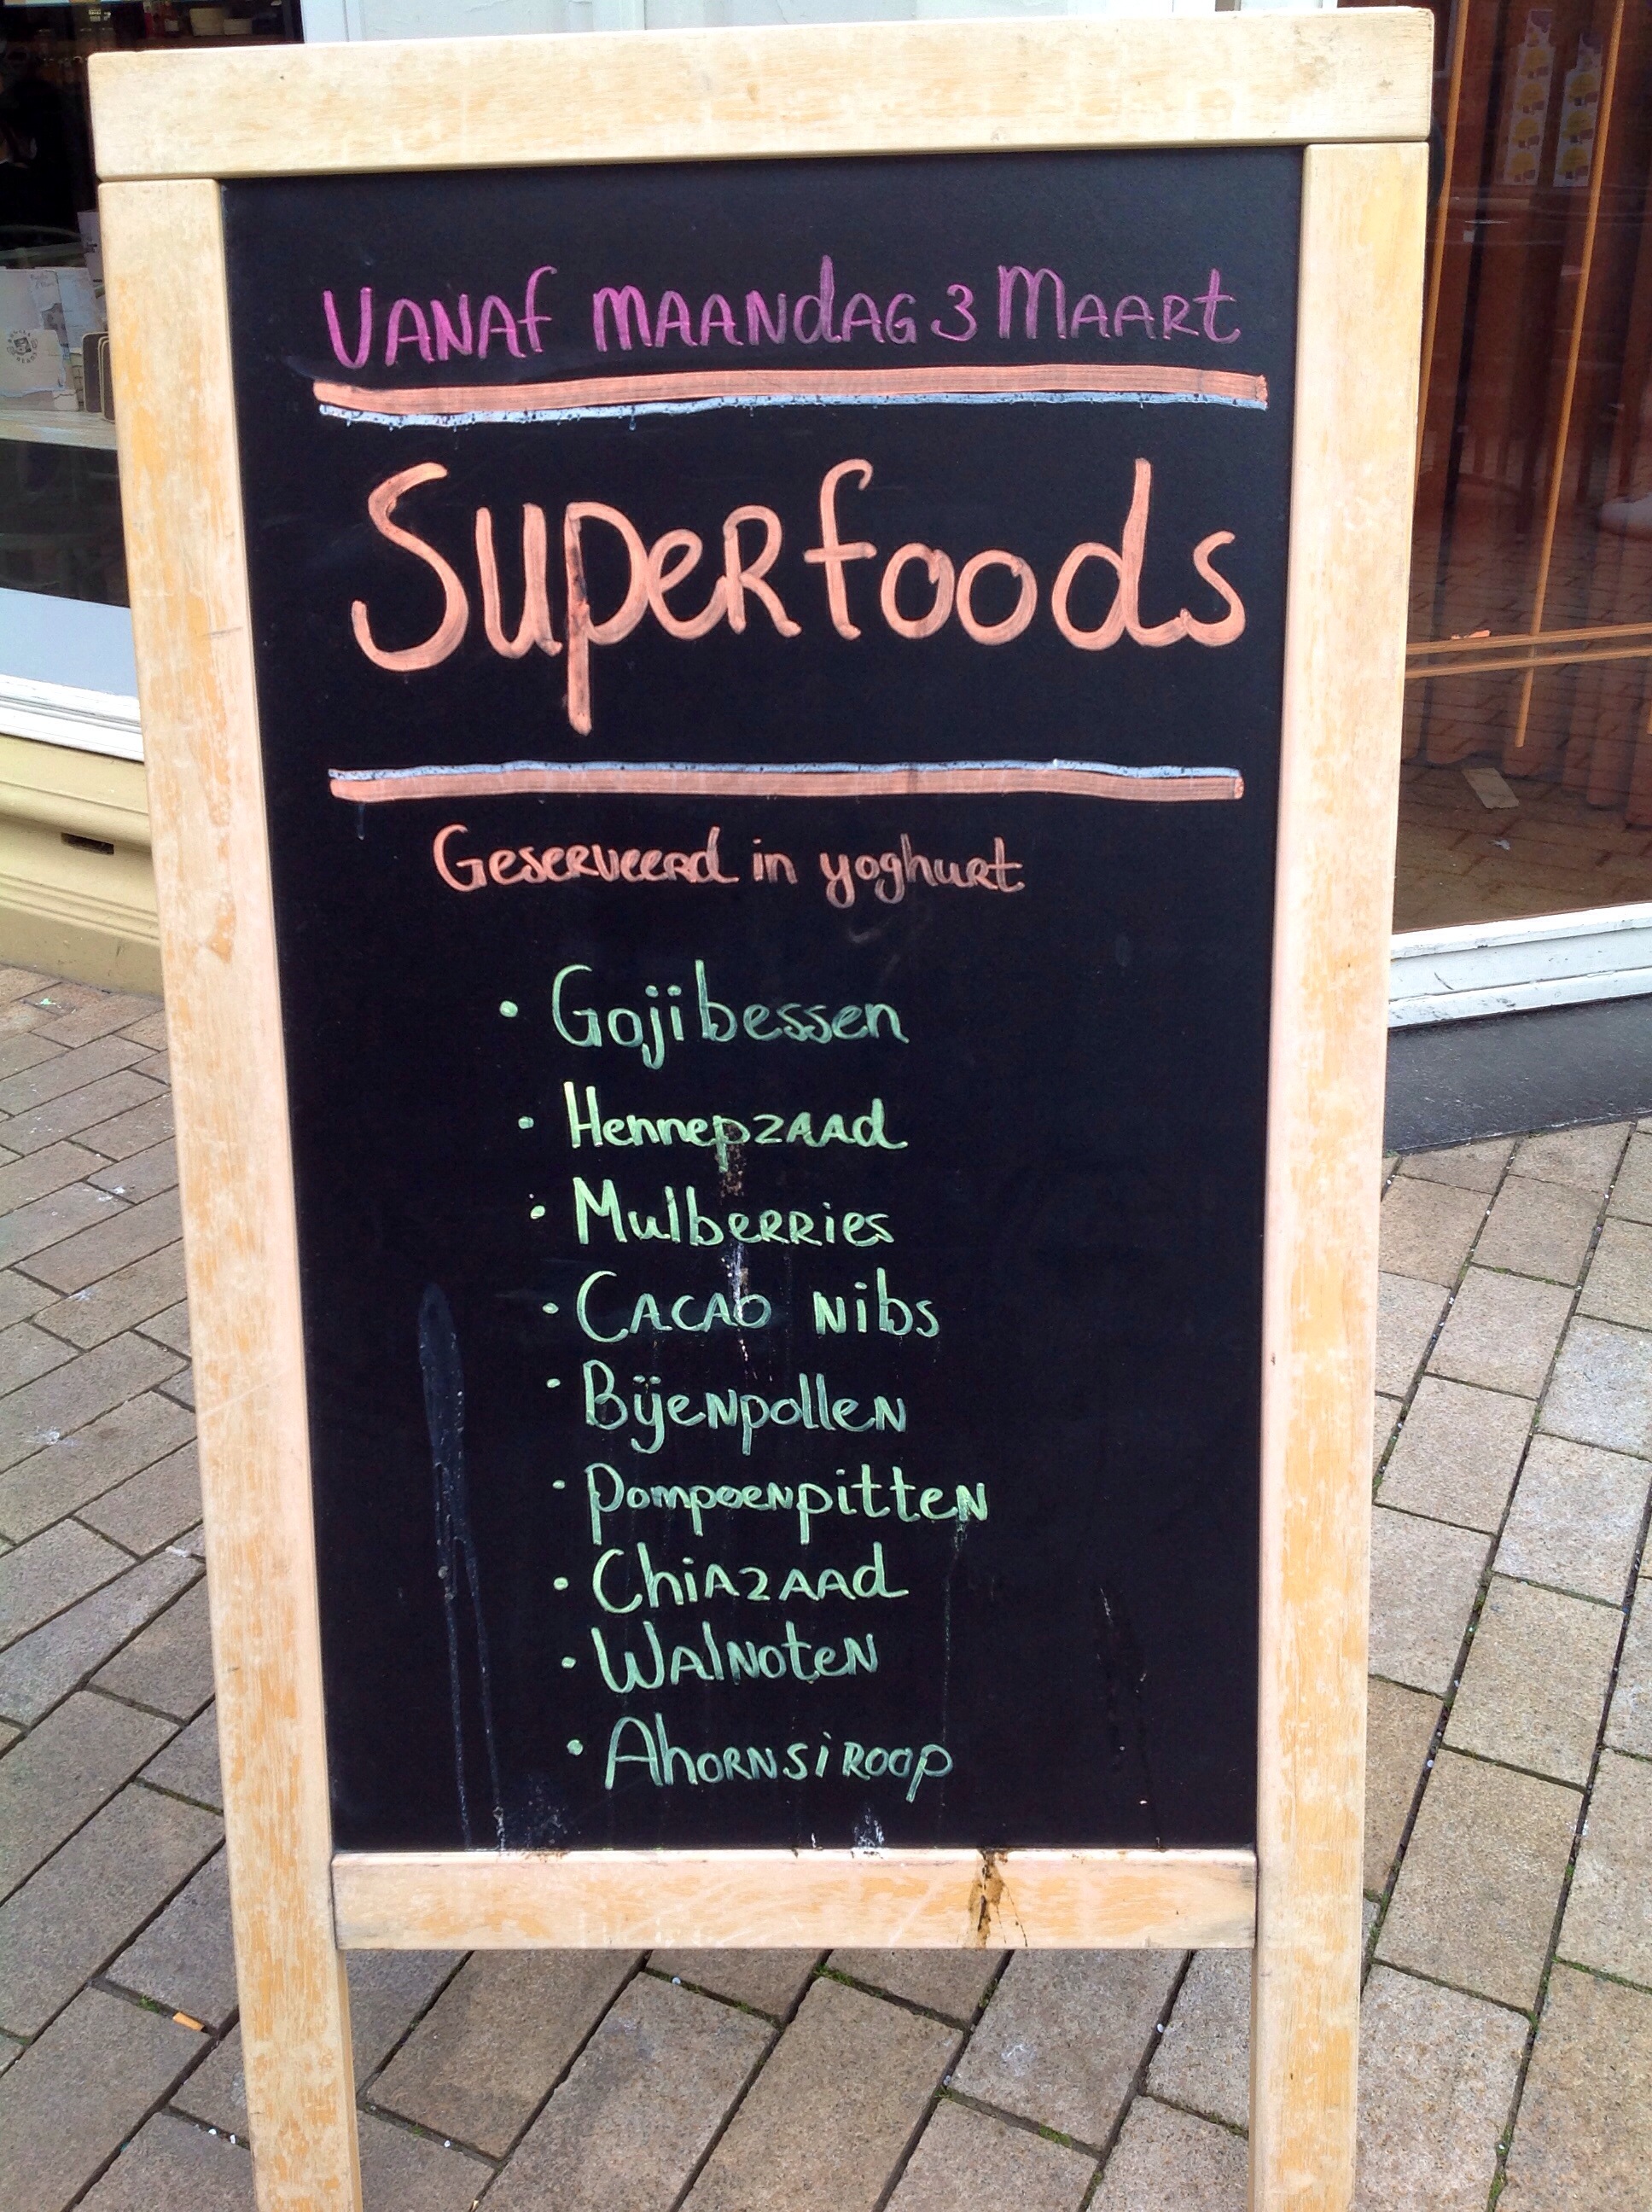 VANAF MAANDAG 3 MAART
Superfoods
Geserveerd in yoghurt
• Gojibessen
• Hennepzaad
• Mulberries
• Cacao nibs
• Bijenpollen
• Pompoenpitten
• Chiazaad
• Walnoten
• Ahornsiroop